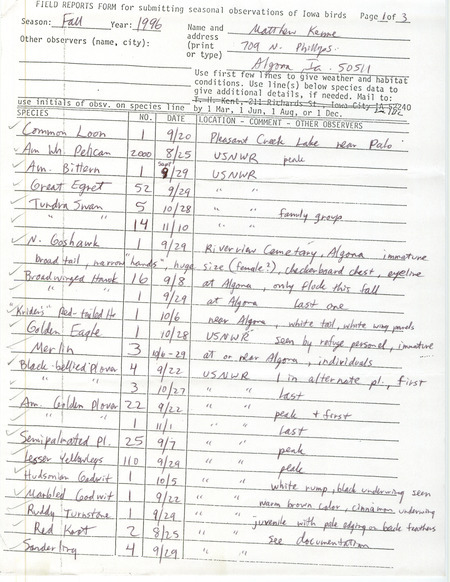 FIELD REPORTS FORM for submitting seasonal observations of Iowa birds Page 1 of 3
Season: Fall Year: 1996 Name and Matthew Kenne
Other observers (name, city): address 709 N. Phillips
(print
or type) Algona, Ia. 50511
Use first few lines to give weather and habitat
conditions. Use line(s) below species data to
give additional details, if needed. Mail to:
T. H. Kent, 211 Richards St., Iowa City IA 52240
use initials of obsv. on species line by 1 Mar, 1 Jun, 1 Aug, or 1 Dec.
SPECIES NO. DATE LOCATION - COMMENT - OTHER OBSERVERS
Common Loon 1 9/20 Pleasant Creek Lake near Palo
Am Wh. Pelican 2000 8/25 USNWR peak
Am. Bittern 1 9/29 USNWR
Great Egret 52 9/29 " "
Tundra Swan 5 10/28 " " family group
" " 14 11/10 " "
N. Goshawk 1 9/29 Riverview Cemetary, Algona immature
broad tail, narrow "hands", huge size (female?), checkerboard chest, eyeline
Broadwinged Hawk 16 9/8 at Algona, only flock this fall
" " 1 9/29 at Algona last one
"Krider's" Red-tailed Ha 1 10/6 near Algona, white tail, white wing panels
Golden Eagle 1 10/28 USNWR seen by refuge personel, immature
Merlin 3 10/6-29 at or near Algona, individuals
Black-bellied Plover 4 9/22 USNWR 1 in alternate pl., first
" " 3 10/27 " " last
Am. Golden Plover 22 9/22 " " peak + first
" " 1 11/1 " " last
Semipalmated Pl. 25 9/7 " " peak
Lesser Yellowlegs 110 9/29 " " peak
Hudsonian Godwit 1 10/5 " " white rump, black underwing seen
Marbled Godwit 1 9/22 " " warm brown color, cinnamon underwing
Ruddy Turnstone 1 9/29 " " juvenile with pale edging on back feathers
Red Knot 2 8/25 " " see documentation
Sanderling 4 9/29 " "